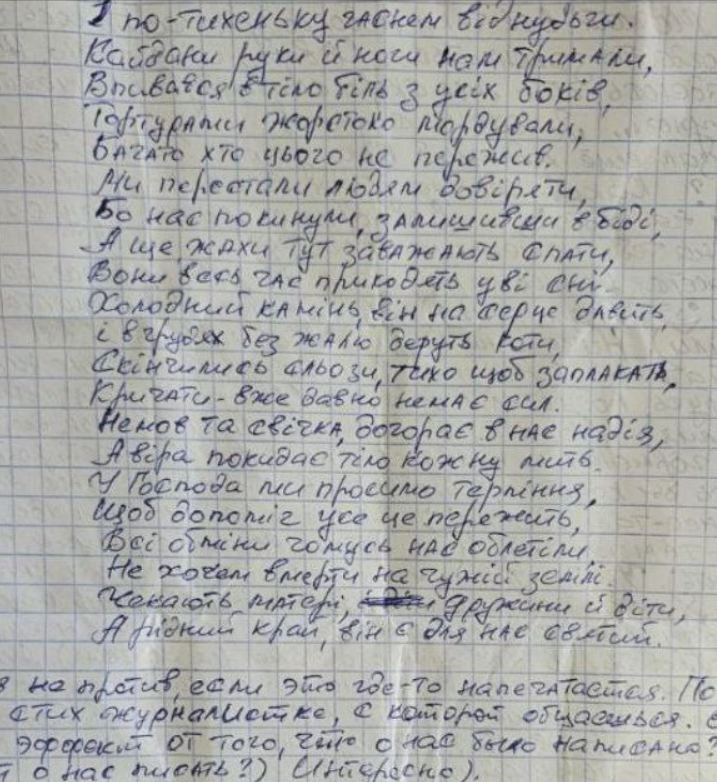 І по-тихеньку гаснем від нудьги.
Кайдани руки й ноги нам тримали,
Впивався в тіло біль з усіх боків,
Тортурами жорстоко мордували,
Багато хто цього не пережив.
Ми перестали людям довіряти,
Бо нас покинули, залишивши в біді,
А ще жахи тут заважають спати,
Вони весь час приходять уві сні.
Холодний камінь, він на серце давить,
і в грудях без жалю деруть коти,
Скінчились сльози, тихо щоб заплакать,
Кричати - вже давно немає сил.
Немов та свічка, догорає в нас надія,
А віра покидає тіло кожну мить.
У Господа ми просимо терпіння,
Щоб допоміг усе це пережить,
Всі обміни чомусь нас облетіли,
Не хочем вмерти на чужій землі.
Чекають матері, дружини й діти,
А рідний край, він є для нас святий.
не против, если это где-то напечатается. По
стих журналистке, с которой общаешься.
эффект от того, что о нас было написано?
о нас писать?) (Интересно).